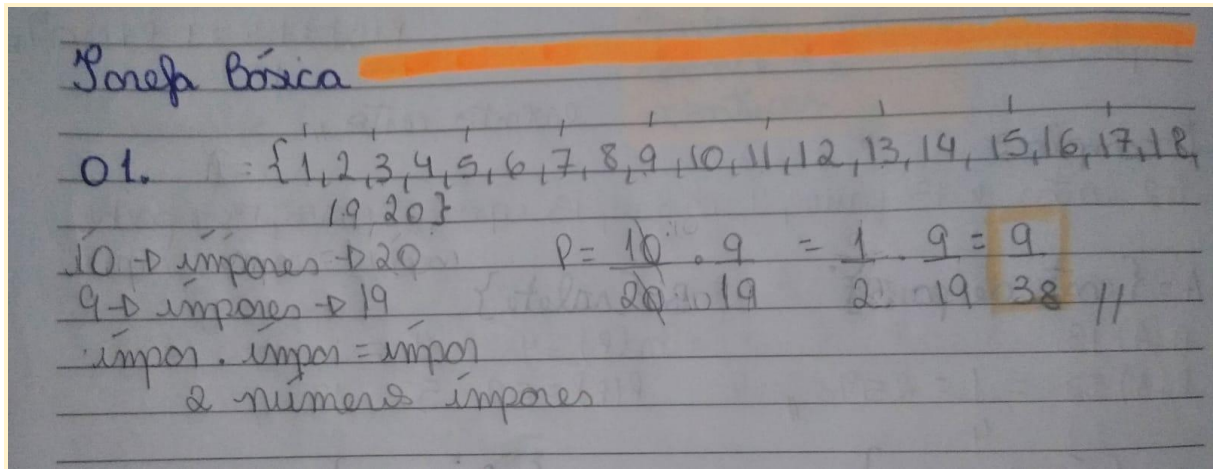 Tarefa Básica
01. A = {1,2,3,4,5,6,7,8,9,10,11,12,13,14,15,16,17,18,
19 20}
10 → ímpares → 20 P = 10/20 . 9/19 = 1/2 . 9/19 = 9/38 //
9 → ímpares → 19
ímpar . ímpar = ímpar
2 números ímpares